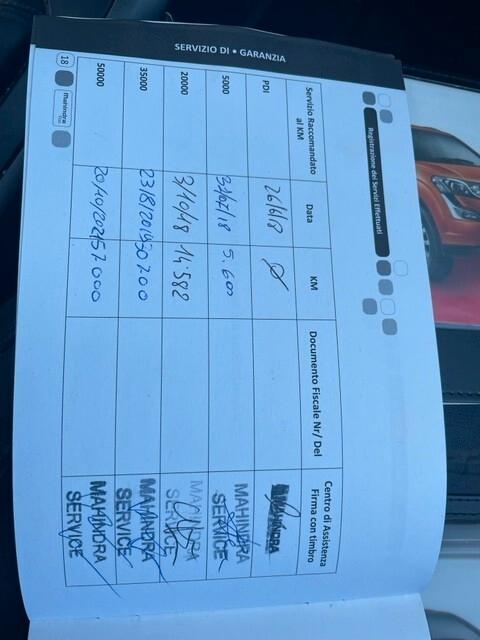 SERVIZIO DI • GARANZIA
Registrazione dei Servizi Effettuati
Servizio Raccomandato al KM Data KM Documento Fiscale Nr/ Del Centro di Assistenza Firma con timbro
PDI 26/6/18 Ø MAHINDRA
5000 31/07/18 5.600 MAHINDRA SERVICE
20000 3/10/18 14.582 MAHINDRA SERVICE
35000 23/8/2019 30700 MAHINDRA SERVICE
50000 20/10/2021 57.000 MAHINDRA SERVICE
18 Mahindra